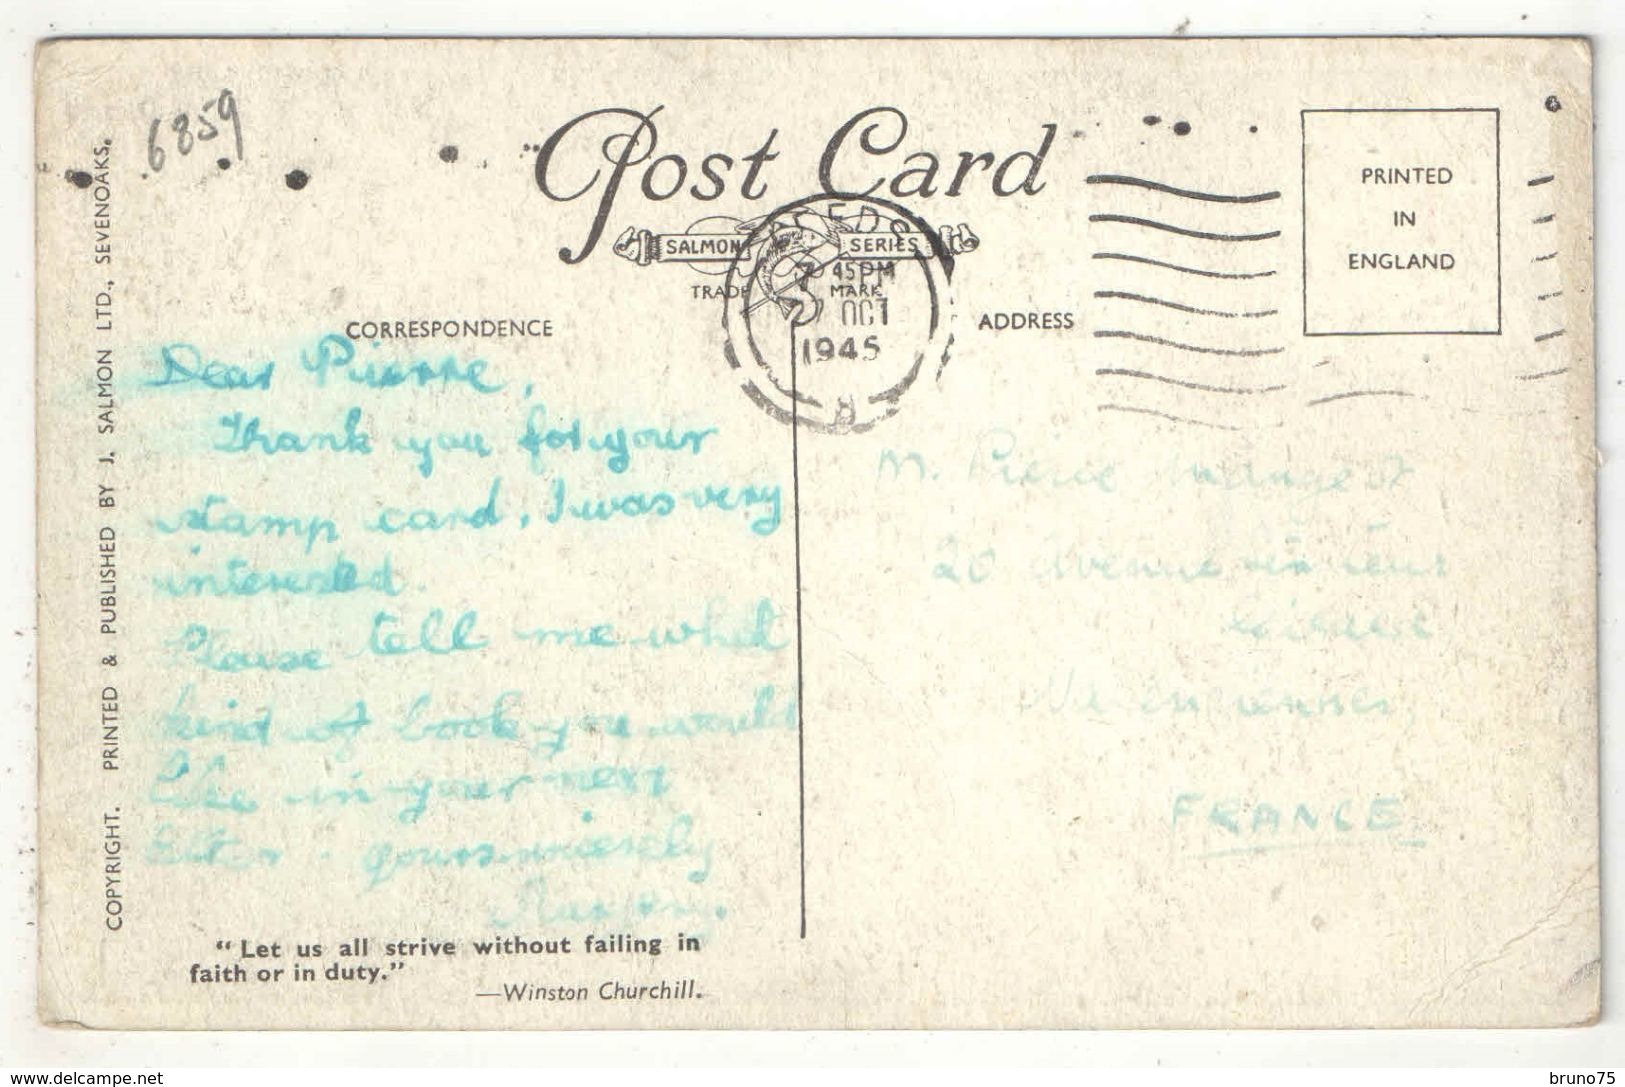 6859
Post Card
SALMON SERIES
TRADE MARK
45PM
OCT
1945
PRINTED
IN
ENGLAND
COPYRIGHT. PRINTED & PUBLISHED BY J. SALMON LTD., SEVENOAKS.
CORRESPONDENCE
ADDRESS
Dear Pierre,
Thank you for your
stamp card, I was very
interested.
Please tell me what
kind of book you would
like in your next
letter. yours sincerely
"Let us all strive without failing in
faith or in duty."
—Winston Churchill.
M. Pierre
20 Avenue
FRANCE
delcampe.net
bruno75